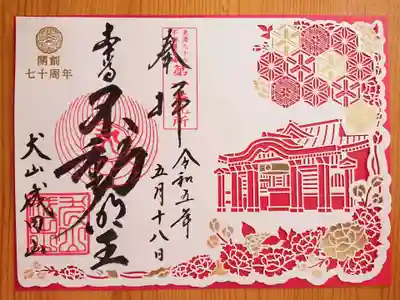 奉拝
令和五年
五月十八日
本尊不動明王
犬山成田山
開創
七十周年